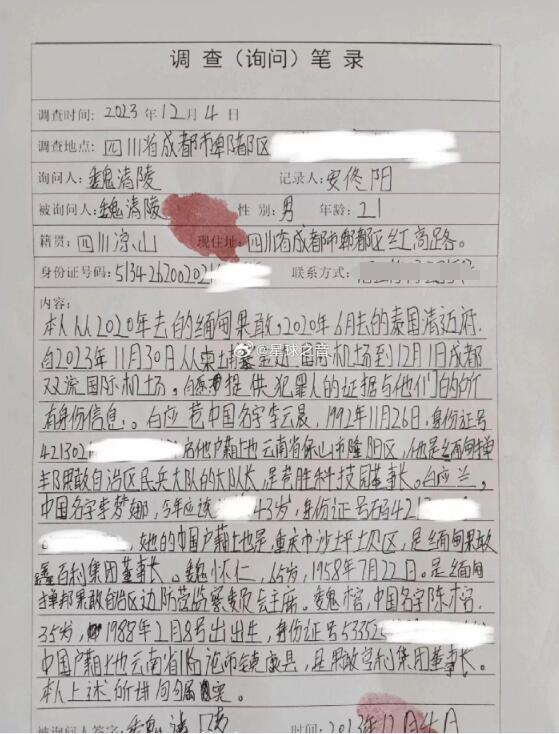 调 查（询问）笔 录
调查时间：2023 年 12 月 4 日
调查地点：四川省成都市郫都区
询问人：魏清陵 记录人：安佟阳
被询问人：魏清陵 性 别：男 年龄：21
籍贯：四川凉山 现住址：四川省成都市郫都区红高路
身份证号码：5134262002021 联系方式：
内容：
本人从2020年去的缅甸果敢，2020年6月去的泰国清迈府，
自2023年11月30日从柬埔寨金边国际机场到12月1日成都
双流国际机场。自愿提供犯罪人的证据与他们的所
有身份信息。白应苍中国名字李云晨，1992年11月26日，身份证号
421302 户籍地云南省保山市隆阳区，他是缅甸掸
邦果敢自治区民兵大队的大队长，是苍胜科技园董事长。白应兰，
中国名字李梦娜，今年应该 43岁，身份证号码42
她的中国户籍地也是，重庆市沙坪坝区，是缅甸果敢
鑫百利集团董事长。魏怀仁，65岁，1958年7月22日。是缅甸
掸邦果敢自治区边防营监察委员会主席。魏榕，中国名字陈榕，
35岁，1988年2月8号出生，身份证号533525
中国户籍地云南省临沧市镇康县，是果敢亨利集团董事长。
本人上述所讲句句属实。
被询问人签字：魏清陵 时间：2023年12月4日
@星球之音